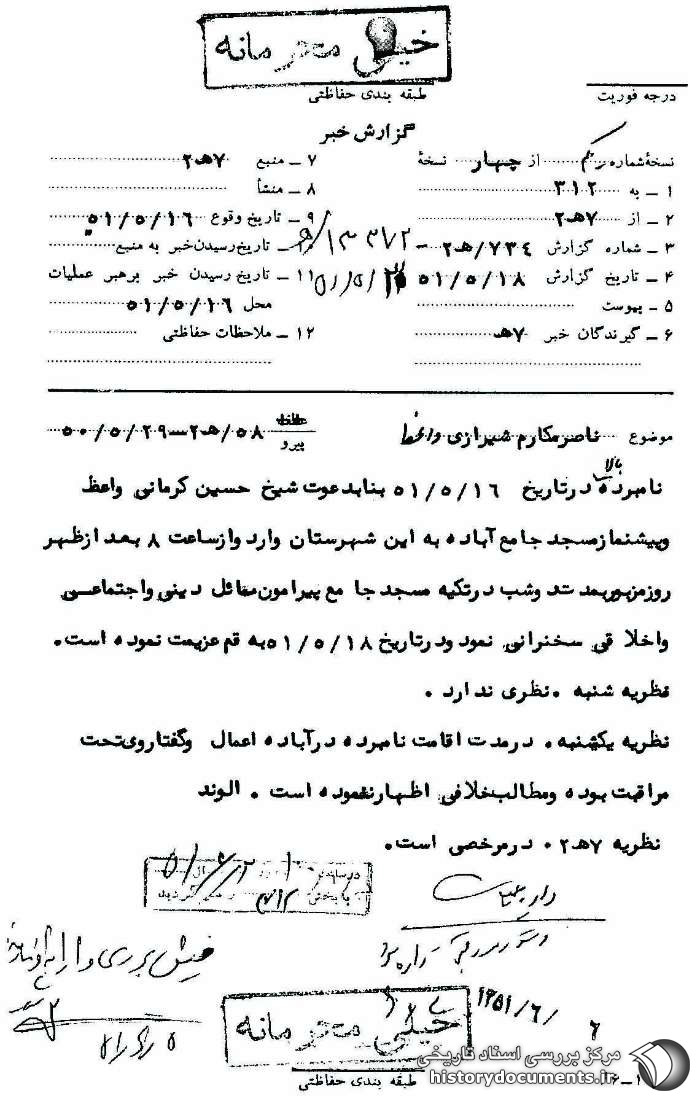 خیلی محرمانه
طبقه بندی حفاظتی
درجه فوریت
گزارش خبر
نسخهٔ شماره یکم از چهار نسخهٔ
۱ ـ به ۳۱۲
۲ ـ از ۷هـ۲
۳ ـ شماره گزارش ۷۳۴/هـ۲
۴ ـ تاریخ گزارش ۵۱/۵/۱۸
۵ ـ پیوست
۶ ـ گیرندگان خبر ۷هـ
۷ ـ منبع ۷هـ۲
۸ ـ منشأ
۹ ـ تاریخ وقوع ۵۱/۵/۱۶
تاریخ رسیدن خبر به منبع
۱۱ ـ تاریخ رسیدن خبر برهبر عملیات
محل ۵۱/۵/۱۶
۱۲ ـ ملاحظات حفاظتی
موضوع ناصر مکارم شیرازی واعظ
پیرو ۵۸/هـ۲ـ ۵۰/۵/۲۹
نامبرده بالا در تاریخ ۵۱/۵/۱۶ بنابدعوت شیخ حسین کرمانی واعظ
وپیشنماز مسجد جامع آباده به این شهرستان وارد وازساعت ۸ بعد ازظهر
روز مزبور بمدت دوشب درتکیه مسجد جامع پیرامون مسائل دینی واجتماعی
واخلاقی سخنرانی نمود ودرتاریخ ۵۱/۵/۱۸ به قم عزیمت نموده است.
نظریه شنبه . نظری ندارد .
نظریه یکشنبه . درمدت اقامت نامبرده درآباده اعمال وگفتاروی تحت
مراقبت بوده ومطالب خلافی اظهارننموده است . الوند
نظریه ۷هـ۲ . درمرخصی است.
۱۳۵۱/۶/۶
خیلی محرمانه
طبقه بندی حفاظتی
مرکز بررسی اسناد تاریخی
historydocuments.ir